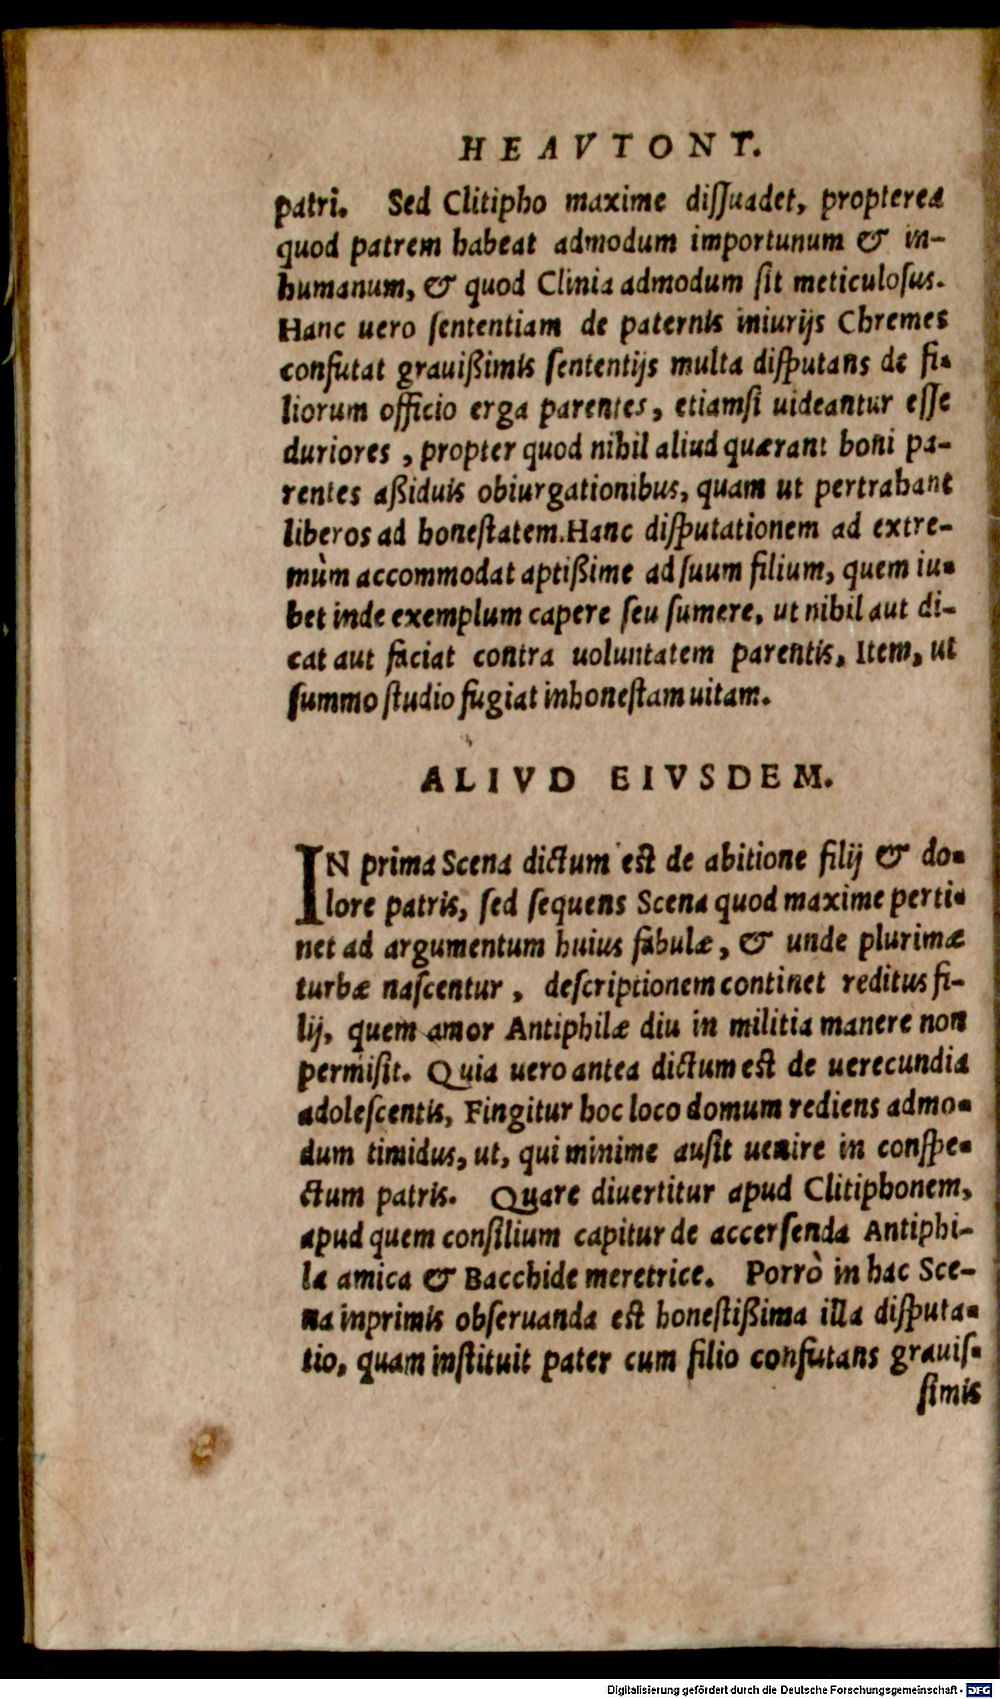 HEAVTONT.
patri. Sed Clitipho maxime diſſuadet, propterea
quod patrem habeat admodum importunum & in-
humanum, & quod Clinia admodum ſit meticuloſus.
Hanc uero ſententiam de paternis iniurijs Chremes
confutat grauißimis ſententijs multa diſputans de fi-
liorum officio erga parentes, etiamſi uideantur eſſe
duriores, propter quod nihil aliud quærant boni pa-
rentes aßiduis obiurgationibus, quam ut pertrahant
liberos ad honeſtatem. Hanc diſputationem ad extre-
mùm accommodat aptißime ad ſuum filium, quem iu-
bet inde exemplum capere ſeu ſumere, ut nihil aut di-
cat aut faciat contra uoluntatem parentis, Item, ut
ſummo ſtudio fugiat inhoneſtam uitam.
ALIVD EIVSDEM.
IN prima Scena dictum eſt de abitione filij & do-
lore patris, ſed ſequens Scena quod maxime perti-
net ad argumentum huius fabulæ, & unde plurimæ
turbæ naſcentur, deſcriptionem continet reditus fi-
lij, quem amor Antiphilæ diu in militia manere non
permiſit. Quia uero antea dictum eſt de uerecundia
adoleſcentis, Fingitur hoc loco domum rediens admo-
dum timidus, ut, qui minime auſit uenire in conſpe-
ctum patris. Quare diuertitur apud Clitiphonem,
apud quem conſilium capitur de accerſenda Antiphi-
la amica & Bacchide meretrice. Porrò in hac Sce-
na inprimis obſeruanda eſt honeſtißima illa diſputa-
tio, quam inſtituit pater cum filio confutans grauiſ-
ſimis
Digitalisierung gefördert durch die Deutsche Forschungsgemeinschaft - DFG